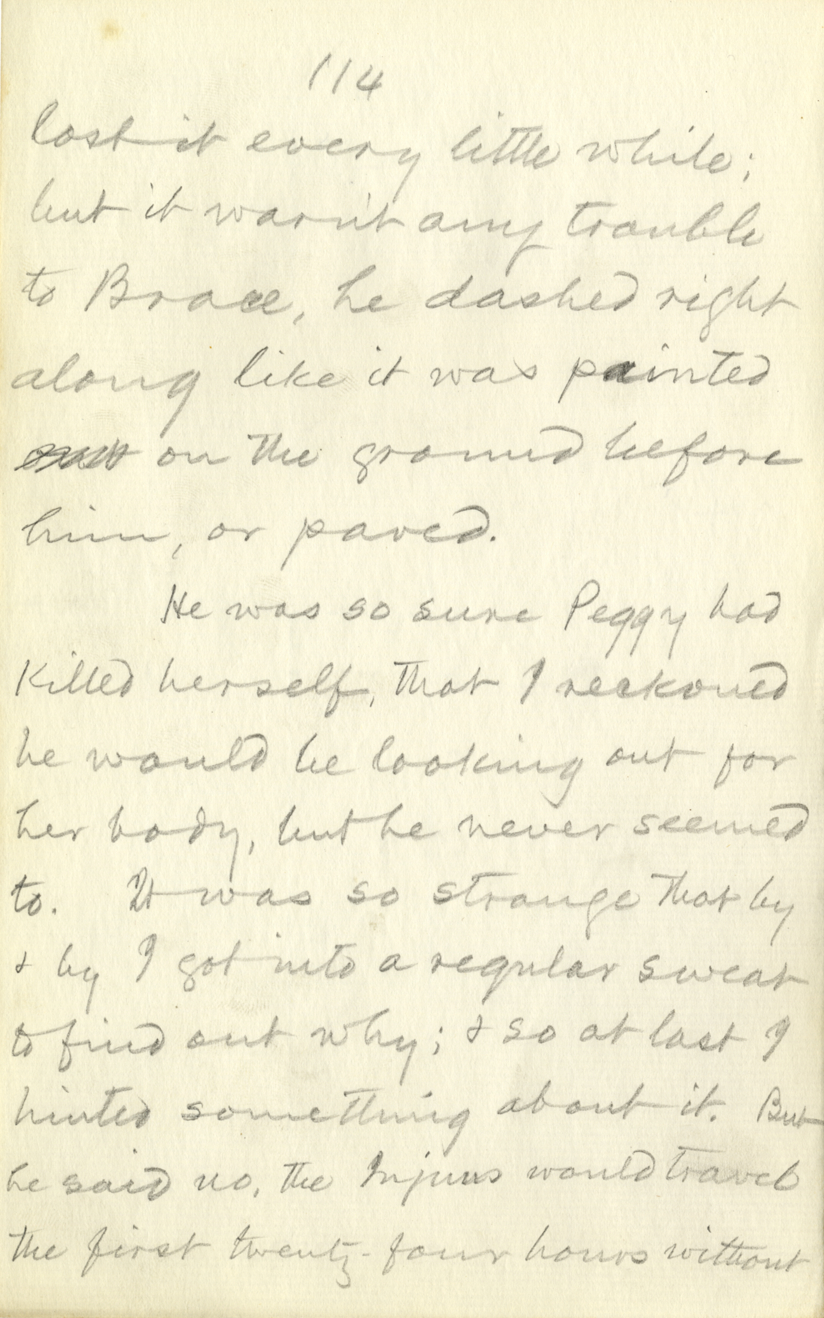 114
lost it every little while;
but it warn't any trouble
to Brace, he dashed right
along like it was painted
on the ground before
him, or paved.
He was so sure Peggy had
killed herself, that I reckoned
he would be looking out for
her body, but he never seemed
to. It was so strange that by
& by I got into a regular sweat
to find out why; & so at last I
hinted something about it. But
he said no, the Injuns would travel
the first twenty-four hours without